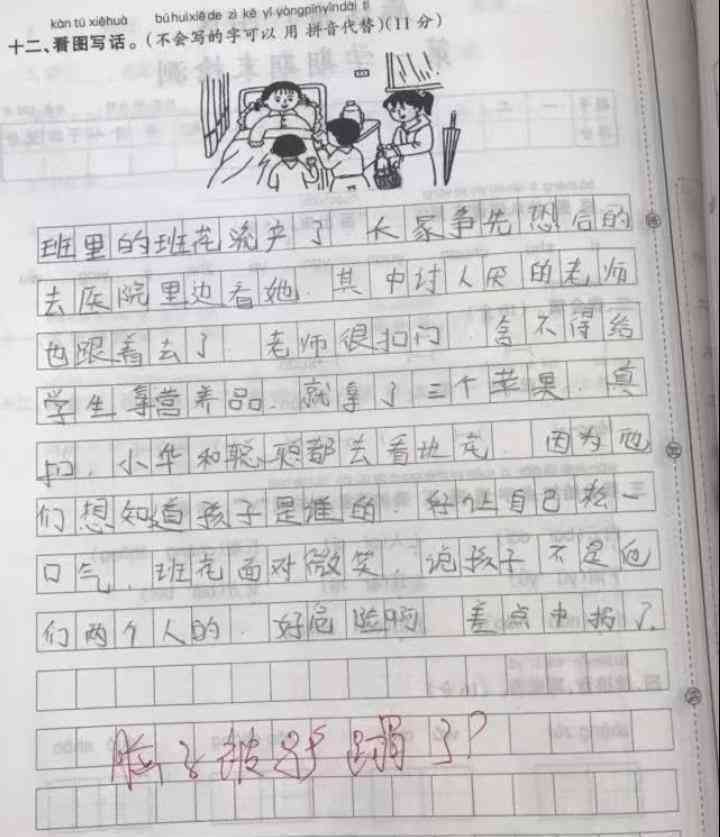 kàn tú xiěhuà bú huì xiě de zì kě yǐ yòng pīn yīn dài tì
十二、看图写话。(不会写的字可以 用 拼音代替)(11 分)
班里的班花流产了 大家争先恐后的
去医院里边看她.其中讨人厌的老师
也跟着去了.老师很扣门.舍不得给
学生拿营养品.就拿了三个苹果 真
扣.小华和聪聪都去看班花.因为他
们想知道孩子是谁的.好让自己松一
口气.班花面对微笑.说孩子不是他
们两个人的.好危险啊 差点中招了.
脑子被驴踢了?